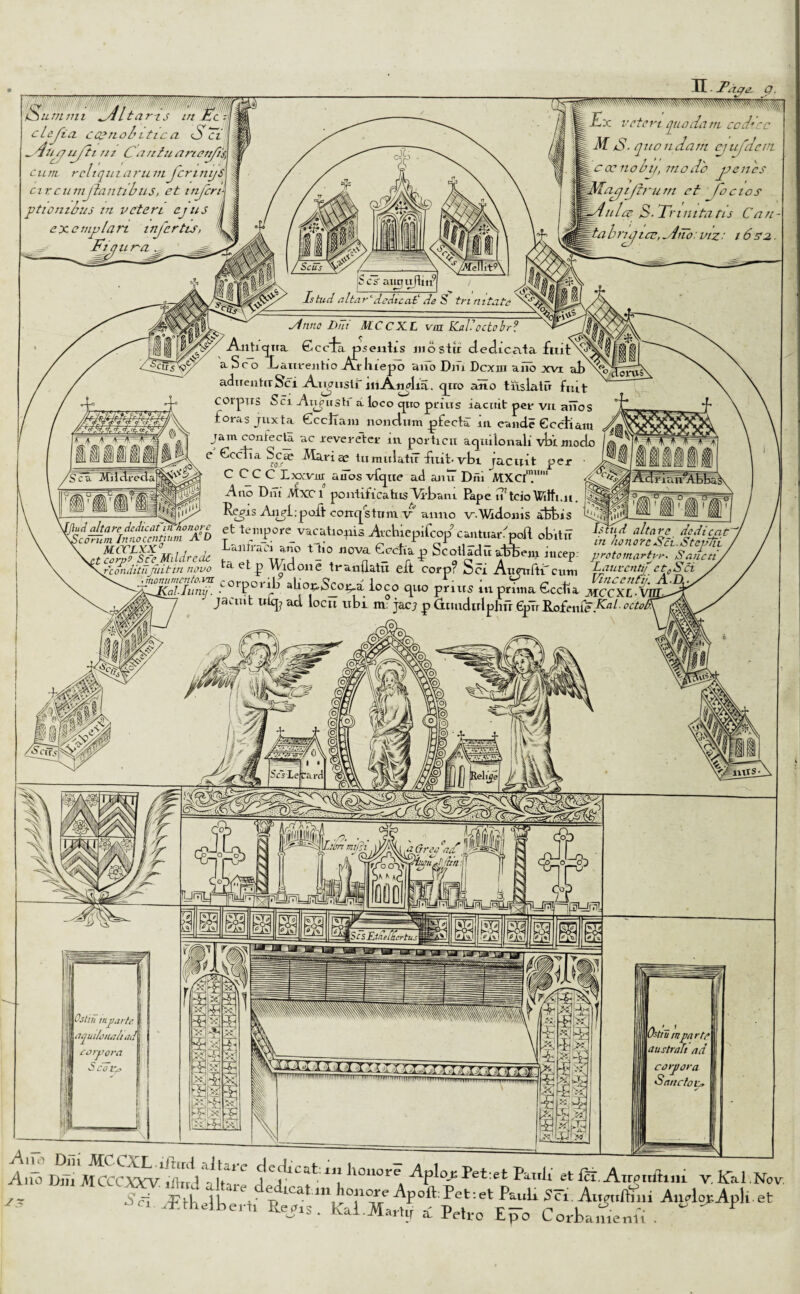 II. Page. 9.
Summi Altaris in Ec:
clesia cœnobitica Sci
Augustini Cantuariensis,
cum reliquiarum scriniis
circumstantibus, et inscri-
ptionibus in veteri ejus
exemplari insertis,
Figura.
Ex veteri quodam codice
M S. quondam ejusdem
cœnobij, modo penes
Magistrum et Socios
Aulæ S. Trinitatis Can-
tabrigiæ, Año: viz: 1652.
Scūs
Mellitꝰ
Scs augustinꝰ
Scūs Iustus
Istud altar' dedicat' de S trinitate
Anno Dni MCCXL viii Kal. octobr?
Antiqua Eccl̄a p̄sentis mōstir dedicata fuit
a Sc̄o Laurentio Arhiepo año Dñi Dcxiii año xvi ab
adventu Sci Augusti in Anglia. quo año tn̄slatū fuit
corpus Sci Augusti a loco quo prius iacuit per vii años
foras juxta Ecclīam nondum pfectā in eandē Eccliam
jam confectā ac reverēter in porticu aquilonali vbi modo
e Ecclīa Scæ Mariæ tumulatū fuit. vbi jacuit per
CCCC Lxxviii años vsque ad anū Dñi MXCI
Año Dñi Mxc i° pontificatus Vrbani Pape ii° tcio Willi. ii.
Regis Angl: post conqstum v° anno v. Widonis abbis
et tempore vacationis Archiepiscop̄ cantuar' post obitū
Lanfraci año tīio nova Ecclīa p Scotladū abbem incep:
ta et p Widonē translatū est corp? Sci Augusti cum
corporib alioꝝ Scoꝝ a loco quo prius in prima Ecclīa
jacuit usq; ad locū ubi m° jac; p Gundulphū epū Rofensē
Scā Mildreda
Istud altare dedicat in honore
Scorum Innocentium A D
MCCLXX°
et corp? Scē Mildrede
reconditū fuit in novo
monumento. vii
Kal. Iunij.
Adrian' Abbas
Istud altare dedicat'
in honore Sci. Stephi
protomartyr. Sancti
Laurentij et Sci
Vincentij. A.D.
MCCXL. VIII.
Kal. octob
Scūs
Scs Letard
Relige
Libri missi
a Greg' ad'
Augustin
Scs Ethelbertus
Ostiū in parte
aquilonali ad
corpora
Scoꝝ
Ostiū in parte
australi ad
corpora
Sanctoꝝ
Año Dñi MCCXL. istud altare dedicat: in honorē Aploꝝ Pet: et Pauli et sci. Augustini v. Kal. Nov.
Año Dñi MCCCXXV. istud altare dedicat. in honore Apost: Pet: et Pauli Sci. Augustini Angloꝝ Apli. et
Sci. Æthelberti Regis. Kal. Martij a Petro Epo Corbaniensi.